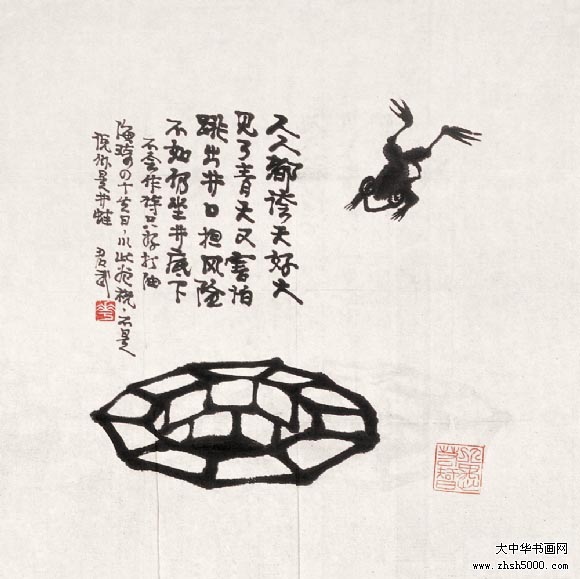 人人都誇天好大
见了青天又害怕
跳出井口担风险
不如仍坐井底下
不会作诗只好打油
十生日，以此祝，不是
说你是井蛙 君武
华
大中华书画网
www.zhsh5000.com